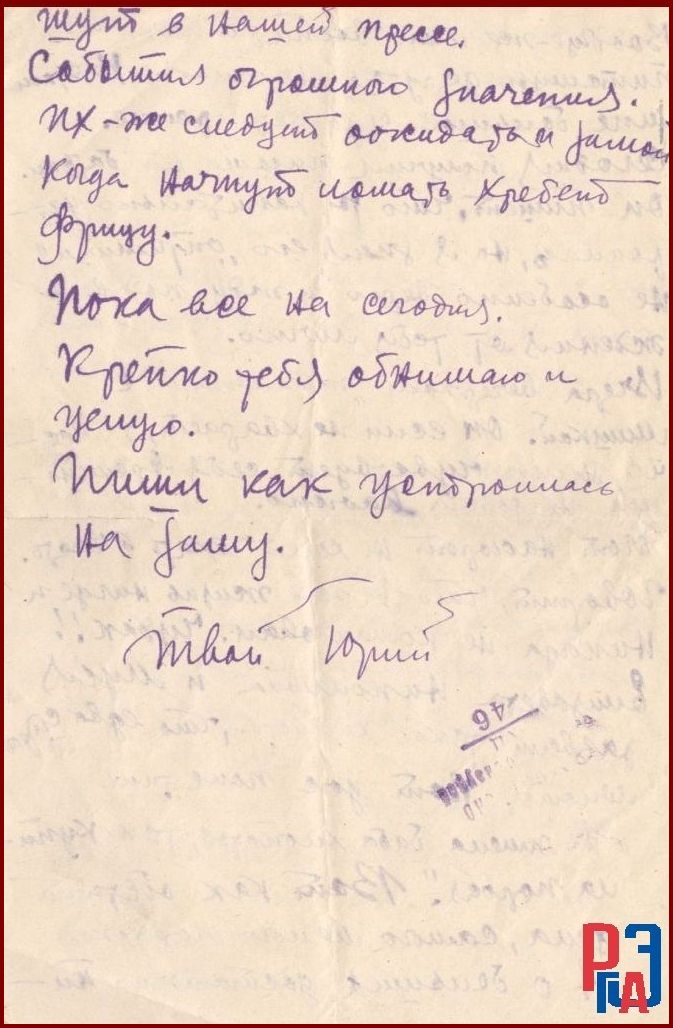 шут в нашей прессе.
События огромного значения.
Их-же следует ожидать и зимой
Когда начнут ломать хребет
фрицу.
Пока все на сегодня.
Крепко тебя обнимаю и
целую.
Пиши как устроилась
на зиму.
Твой Юрий
46
РГАЭ